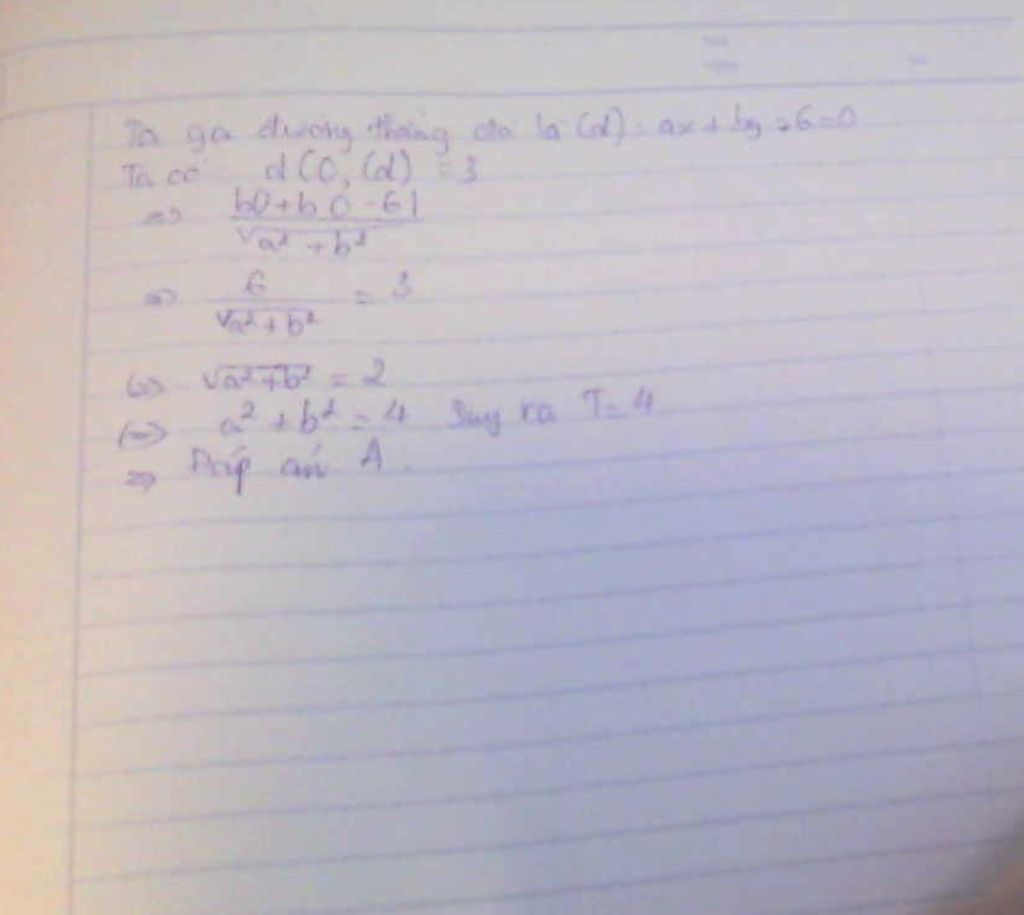 Ta gọi đường thẳng đó là (d): ax + by - 6 = 0
Ta có d(O, (d)) = 3
=> |a0 + b0 - 6| / √a² + b²
=> 6 / √a² + b² = 3
<=> √a² + b² = 2
<=> a² + b² = 4 Suy ra T = 4
=> Đáp án A.